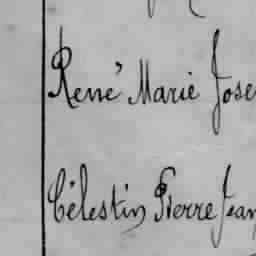 René Marie Jose
Célestin Pierre Jean